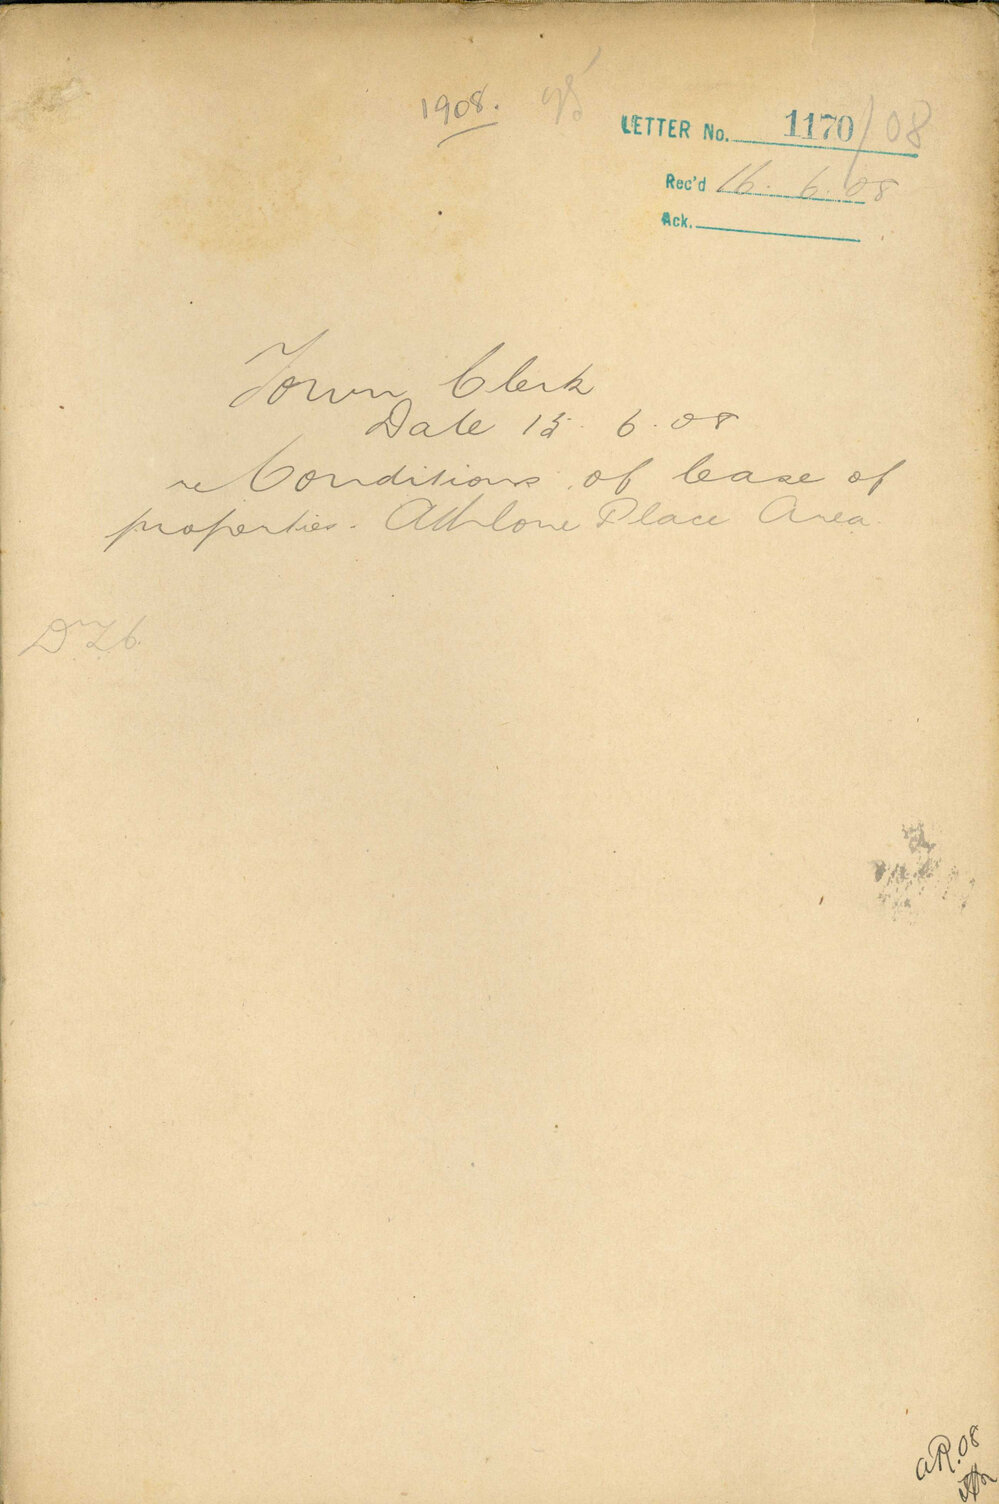 1908.
LETTER No. 1170/08
Rec'd 16. 6. 08
Ack.
Town Clerk
Date 15. 6. 08
re Conditions of lease of
properties. Athlone Place Area
aR.08